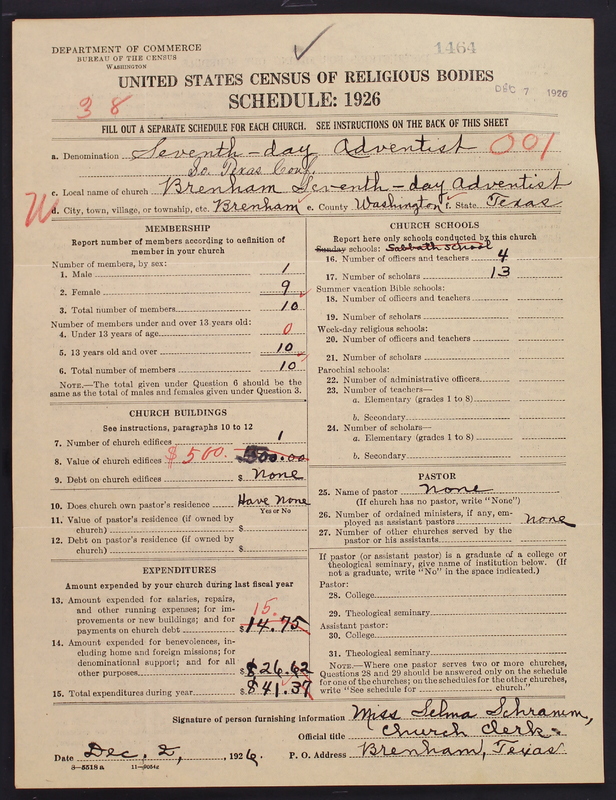 DEPARTMENT OF COMMERCE
BUREAU OF THE CENSUS
WASHINGTON
1464
DEC 7 1926
UNITED STATES CENSUS OF RELIGIOUS BODIES
SCHEDULE: 1926
38
FILL OUT A SEPARATE SCHEDULE FOR EACH CHURCH. SEE INSTRUCTIONS ON THE BACK OF THIS SHEET
a. Denomination Seventh-day Adventist 001
So. Texas Conf.
c. Local name of church Brenham Seventh-day Adventist
W
d. City, town, village, or township, etc. Brenham e. County Washington f. State Texas
MEMBERSHIP
Report number of members according to definition of
member in your church
Number of members, by sex:
1. Male 1
2. Female 9
3. Total number of members 10
Number of members under and over 13 years old:
4. Under 13 years of age 0
5. 13 years old and over 10
6. Total number of members 10
NOTE.—The total given under Question 6 should be the
same as the total of males and females given under Question 3.
CHURCH BUILDINGS
See instructions, paragraphs 10 to 12
7. Number of church edifices 1
8. Value of church edifices $500. 500.00
9. Debt on church edifices $ None
10. Does church own pastor's residence Have None
Yes or No
11. Value of pastor's residence (if owned by
church) $
12. Debt on pastor's residence (if owned by
church) $
EXPENDITURES
Amount expended by your church during last fiscal year
13. Amount expended for salaries, repairs,
and other running expenses; for im-
provements or new buildings; and for
payments on church debt 15. $14.75
14. Amount expended for benevolences, in-
cluding home and foreign missions; for
denominational support; and for all
other purposes $26.62
15. Total expenditures during year $41.37
CHURCH SCHOOLS
Report here only schools conducted by this church
Sunday schools: Sabbath School
16. Number of officers and teachers 4
17. Number of scholars 13
Summer vacation Bible schools:
18. Number of officers and teachers
19. Number of scholars
Week-day religious schools:
20. Number of officers and teachers
21. Number of scholars
Parochial schools:
22. Number of administrative officers
23. Number of teachers—
a. Elementary (grades 1 to 8)
b. Secondary
24. Number of scholars—
a. Elementary (grades 1 to 8)
b. Secondary
PASTOR
25. Name of pastor None
(If church has no pastor, write "None")
26. Number of ordained ministers, if any, em-
ployed as assistant pastors None
27. Number of other churches served by the
pastor or his assistants
If pastor (or assistant pastor) is a graduate of a college or
theological seminary, give name of institution below. (If
not a graduate, write "No" in the space indicated.)
Pastor:
28. College
29. Theological seminary
Assistant pastor:
30. College
31. Theological seminary
NOTE.—Where one pastor serves two or more churches,
Questions 28 and 29 should be answered only on the schedule
for one of the churches; on the schedules for the other churches,
write "See schedule for church."
Signature of person furnishing information Miss Selma Schramm,
Official title Church Clerk.
Date Dec. 2, 1926. P. O. Address Brenham, Texas
8—5518a 11—9054c